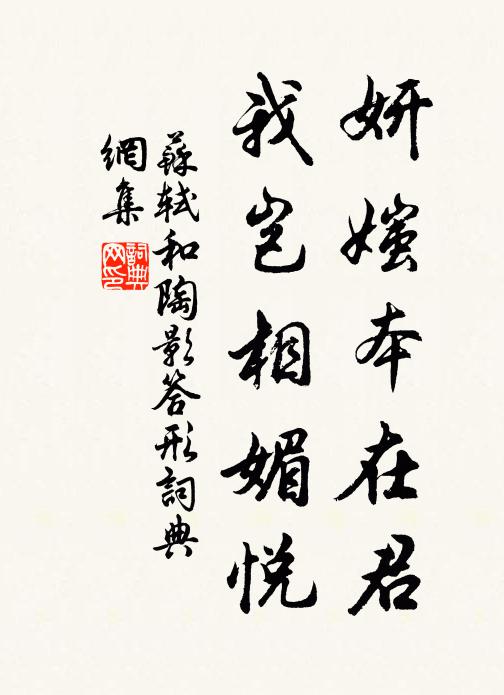 妍媸本在君
我岂相媚悦
蘇軾和陶影答形詞典
網集
詞典网印